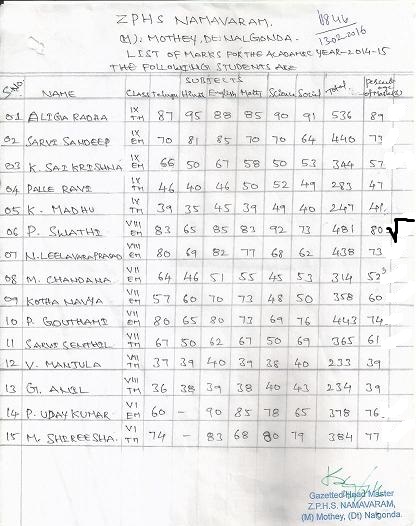 ZPHS NAMAVARAM.
(M): MOTHEY, Dt: NALGONDA.
13-02-2016
LIST OF MARKS FOR THE ACADAMIC YEAR-2014-15
THE FOLLOWING STUDENTS ARE
SUBJECTS
S.No. NAME Class Telugu Hindi English Maths Science Social Total
01 ALIGIA RADHA IX TM 87 95 88 85 90 91 536 89
02 SARVI SANDEEP IX EM 70 81 85 70 70 64 440 73
03 K. SAI KRISHNA IX EM 66 50 67 58 50 53 344 57
04 PALLE RAVI IX TM 46 40 46 50 52 49 283 47
05 K. MADHU IX TM 39 35 45 39 49 40 247 41
06 P. SWATHI VIII EM 83 65 85 83 92 73 481 80 √
07 N. LEELAVARAPRASAD VIII EM 80 69 82 77 68 62 438 73
08 M. CHANDANA VIII TM 64 46 51 55 45 53 314 52
09 KOTHA NAVYA VIII EM 57 60 70 73 48 50 358 60
10 P. GOUTHAMI VIII EM 80 65 80 73 69 76 443 74
11 SARVI SENTHIL VIII TM 67 50 62 67 50 69 365 61
12 V. MANTULA VII TM 37 39 40 39 38 40 233 39
13 G. ANIL VII TM 36 38 39 38 40 43 234 39
14 P. UDAY KUMAR VI EM 60 - 90 85 78 65 378 76
15 M. SHIREESHA VI TM 74 - 83 68 80 79 384 77
Gazetted Head Master
Z.P.H.S. NAMAVARAM,
(M) Mothey, (Dt) Nalgonda.